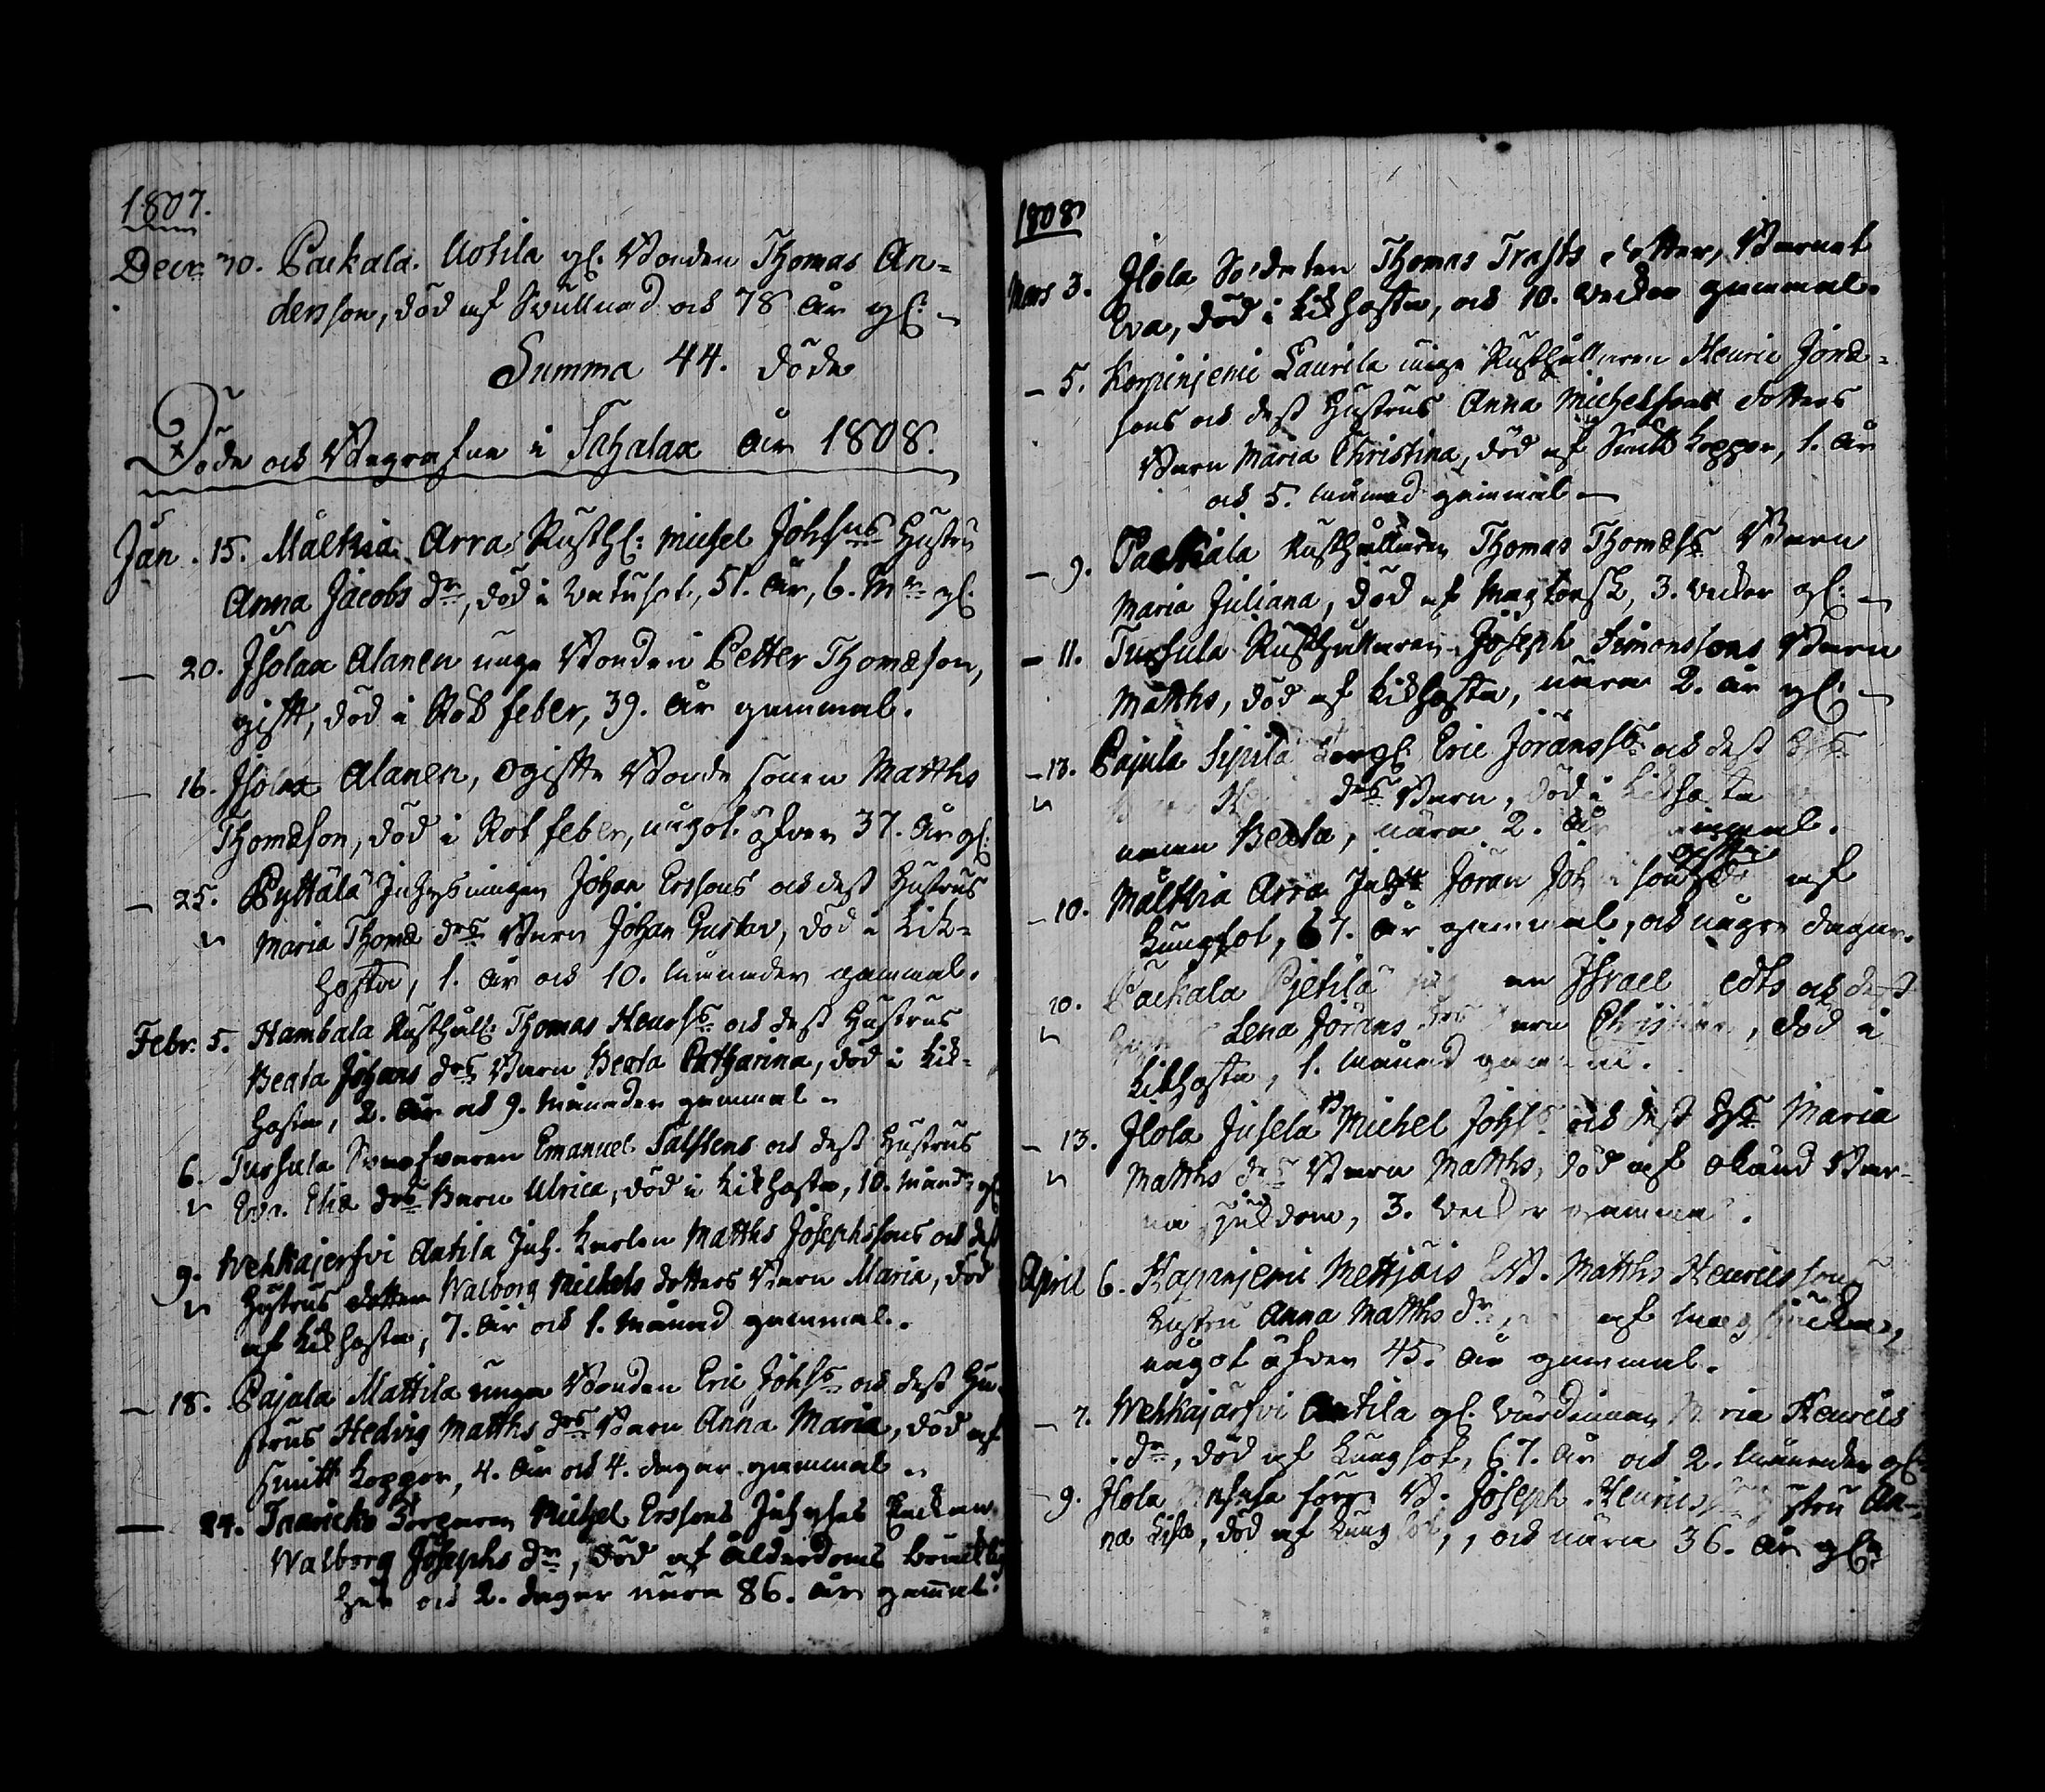 1807.
Decr: 30. Paekala Uotila gl. Bonden Thomas An-
dersson, död af Svullnad och 78 år gl:
Summa 44. döde
Döde och Begrafne i Sahalax År 1808.
Jan. 15. Mälkiä Arra Rusth: Michel Johs:ns Hustru
Anna Jacobs dr, död i Vatusot, 51. år, 6. Mr gl.
— 20. Isolax Alanen unge Bonden Petter Thomæson,
gift, död i Röt feber, 39. år gammal.
— 16. Isolax Alanen, ogifte Bonde sonen Matths
Thomæson, död i Röt feber, något öfver 37. år gl:
— 25. Pyttälä Inhysningen Johan Erssons och dess Hustrus
Maria Thomæ drs Barn Johan Gustav, död i Kik-
hosta, 1. år och 10. månader gammal.
Febr. 5. Hambala Rusthåll: Thomas Henrss och dess Hustrus
Beata Johans drs Barn Beata Catharina, död i Kik-
hosta, 2. år och 9. månader gammal
6. Tursula Svarfvaren Emanuel Salstens och dess Hustrus
Eva Eliæ drs Barn Ulrica, död i Kikhosta, 10. Månd: gl
9. Wehkajerfvi Antila Inh. Karlen Matths Josephssons och dess
Hustrus dotter Walborg Michels dotters Barn Maria, död
af Kikhosta, 7. år och 1. månad gammal.
— 18. Pajula Mattila unge Bonden Eric Johss och dess Hu-
strus Hedvig Matths drs Barn Anna Maria, död af
Smitt koppor, 4. år och 4. dagar gammal
— 24. Michel Erssons Inhyses Enckan
Walborg Josephs dr, död af ålderdoms bräcklig
het och 2. dagar nära 86. år gammal.
1808
Mars 3. Ilola Soldaten Thomas Trasts dotter, Barnet
Eva, död i Kikhosta, och 10. veckor gammal.
— 5. Korpinjemi Laurila unge Rusthållaren Henric Joræ-
sons och dess Hustrus Anna Michelsons dotters
Barn Maria Christina, död af Smitt koppor, 1. år
och 5. månad gammal —
— 9. Paekala Rusthållaren Thomas Thomæss Barn
Maria Juliana, död af Magtorsk, 3. veckor gl:
— 11. Tursula Rusthållaren Joseph Simonssons Barn
Matths, död af Kikhosta, nära 2. år gl:
— 13. Pajula Sipilä Eric Joranss och dess
drs Barn, död i Kikhosta
Beata, nära 2. år gammal.
— 10. Mälkiä Arra Inhs Joran Joh son af
Lungsot, 67. år gammal, och några dagar.
20. Paekala Pjetilä Israel och dess
Lena Jorans drs Barn, död i
Kikhosta, 1. månad gammal.
— 13. Ilola Jusela Michel Johss och dess Maria
Matths drs Barn Matths, död af okänd Bar-
na sjukdom, 3. veckor gammal.
April 6. Matths Henricssons
Hustru Anna Matths dr, af
något öfver 45. år gammal.
— 7. Wehkajärfvi Antila gl. Värdinnan Maria Henrics
dr, död af Lungsot, 67. år och 2. månader gl
— 9. Ilola förr B. Joseph Henricss Hustru An-
na Lisa, död af Lungsot, och nära 36. år gl: